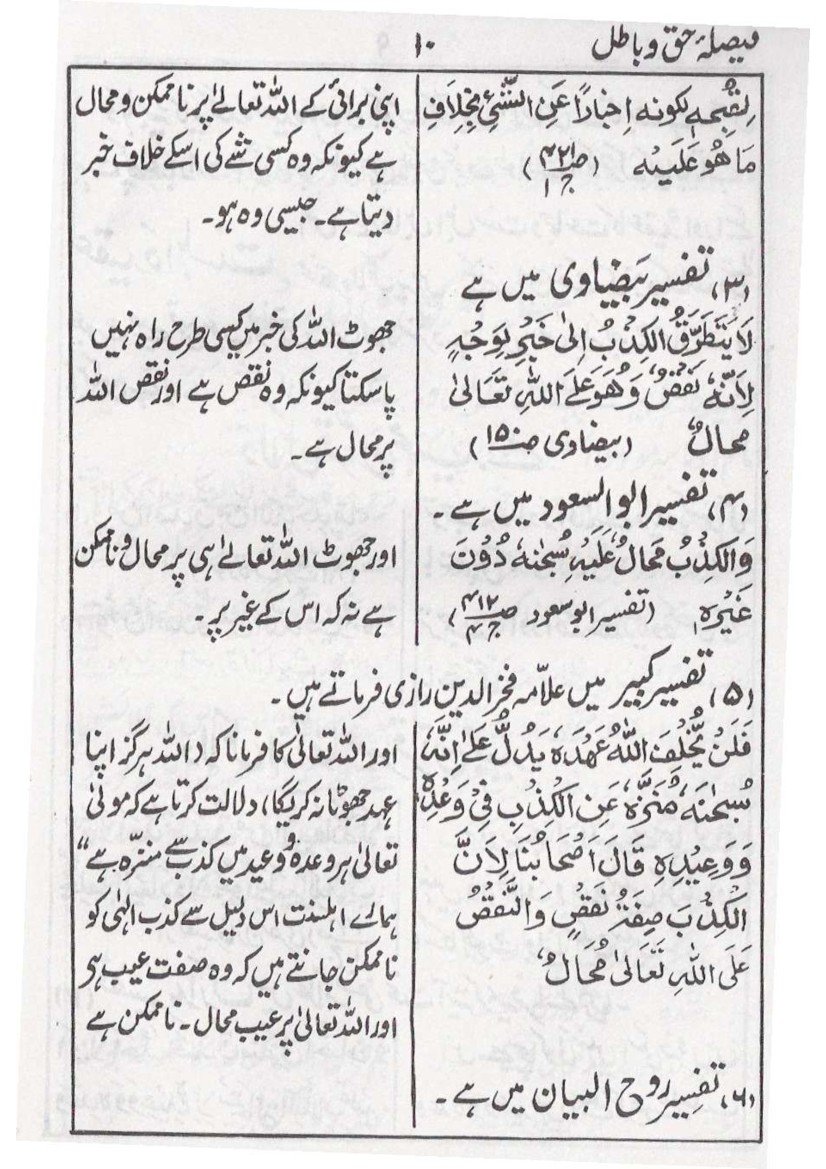 فیصلۂ حق و باطل
۱۰
لقبحہ لکونہ اِخبارًا عَنِ الشَّیْئِ بِخِلَافِ
مَا ھُوَ عَلَیْہِ (ص۴۲۱ ج۱)
اپنی برائی کے اللہ تعالےٰ پر ناممکن و محال
ہے کیونکہ وہ کسی شے کی اسکے خلاف خبر
دیتا ہے۔ جیسی وہ ہو۔
(۳) تفسیر بَیضاوی میں ہے
لَا یَتَطَرَّقُ الکِذْبُ اِلیٰ خَبْرِہٖ بِوَجْہٍ
لِاَنَّہٗ نَقْصٌ وَھُوَ عَلَی اللہِ تَعَالیٰ
محالٌ (بیضاوی ص۱۵۰)
جھوٹ اللہ کی خبر میں کسی طرح راہ نہیں
پا سکتا کیونکہ وہ نقص ہے اور نقص اللہ
پر محال ہے۔
(۴) تفسیر ابو السعود میں ہے۔
وَالکِذْبُ مَحَالٌ عَلَیْہِ سُبْحٰنَہٗ دُوْنَ
غَیْرِہٖ (تفسیر ابو سعود ص۴۱۲ ج۴)
اور جھوٹ اللہ تعالےٰ ہی پر محال و ناممکن
ہے نہ کہ اس کے غیر پر۔
(۵) تفسیر کبیر میں علامہ فخر الدین رازی فرماتے ہیں۔
فَلَنْ یُّخْلِفَ اللہُ عَھْدَہٗ یَدُلُّ عَلیٰ اِنَّہٗ
سُبحٰنَہٗ مُنَزَّہٌ عَنِ الْکَذْبِ فِیْ وَعْدِہٖ
وَوَعِیْدِہٖ قَالَ اَصْحَابُنَا لِاَنَّ
الْکِذْبَ صِفَۃُ نَقْصٍ وَالنَّقْصُ
عَلَی اللہِ تَعَالیٰ مُحَالٌ
اور اللہ تعالیٰ کا فرمانا کہ (اللہ ہرگز اپنا
عہد جھوٹا نہ کریگا) دلالت کرتا ہے کہ مولیٰ
تعالیٰ ہر وعدہ و وعید میں کذب سے منزّہ ہے“
ہمارے اہلسنت اس دلیل سے کذب الٰہی کو
ناممکن جانتے ہیں کہ وہ صفت عیب ہی
اور اللہ تعالیٰ پر عیب محال۔ ناممکن ہے
(۶) تفسیر روح البیان میں ہے۔